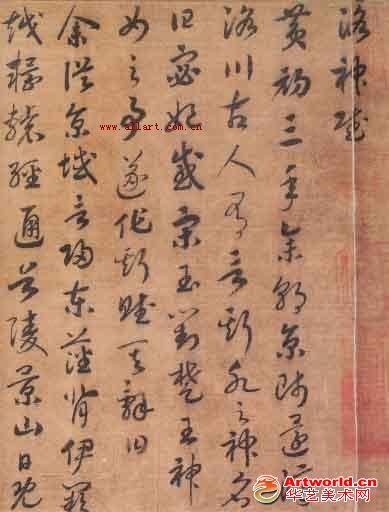 洛神賦
黃初三年余朝京師還濟
洛川古人有言斯水之神名
曰宓妃感宋玉對楚王神
女之事遂作斯賦其辭曰
余從京域言歸東藩背伊闕
越轘轅經通谷陵景山日既
Artworld.cn
华艺美术网